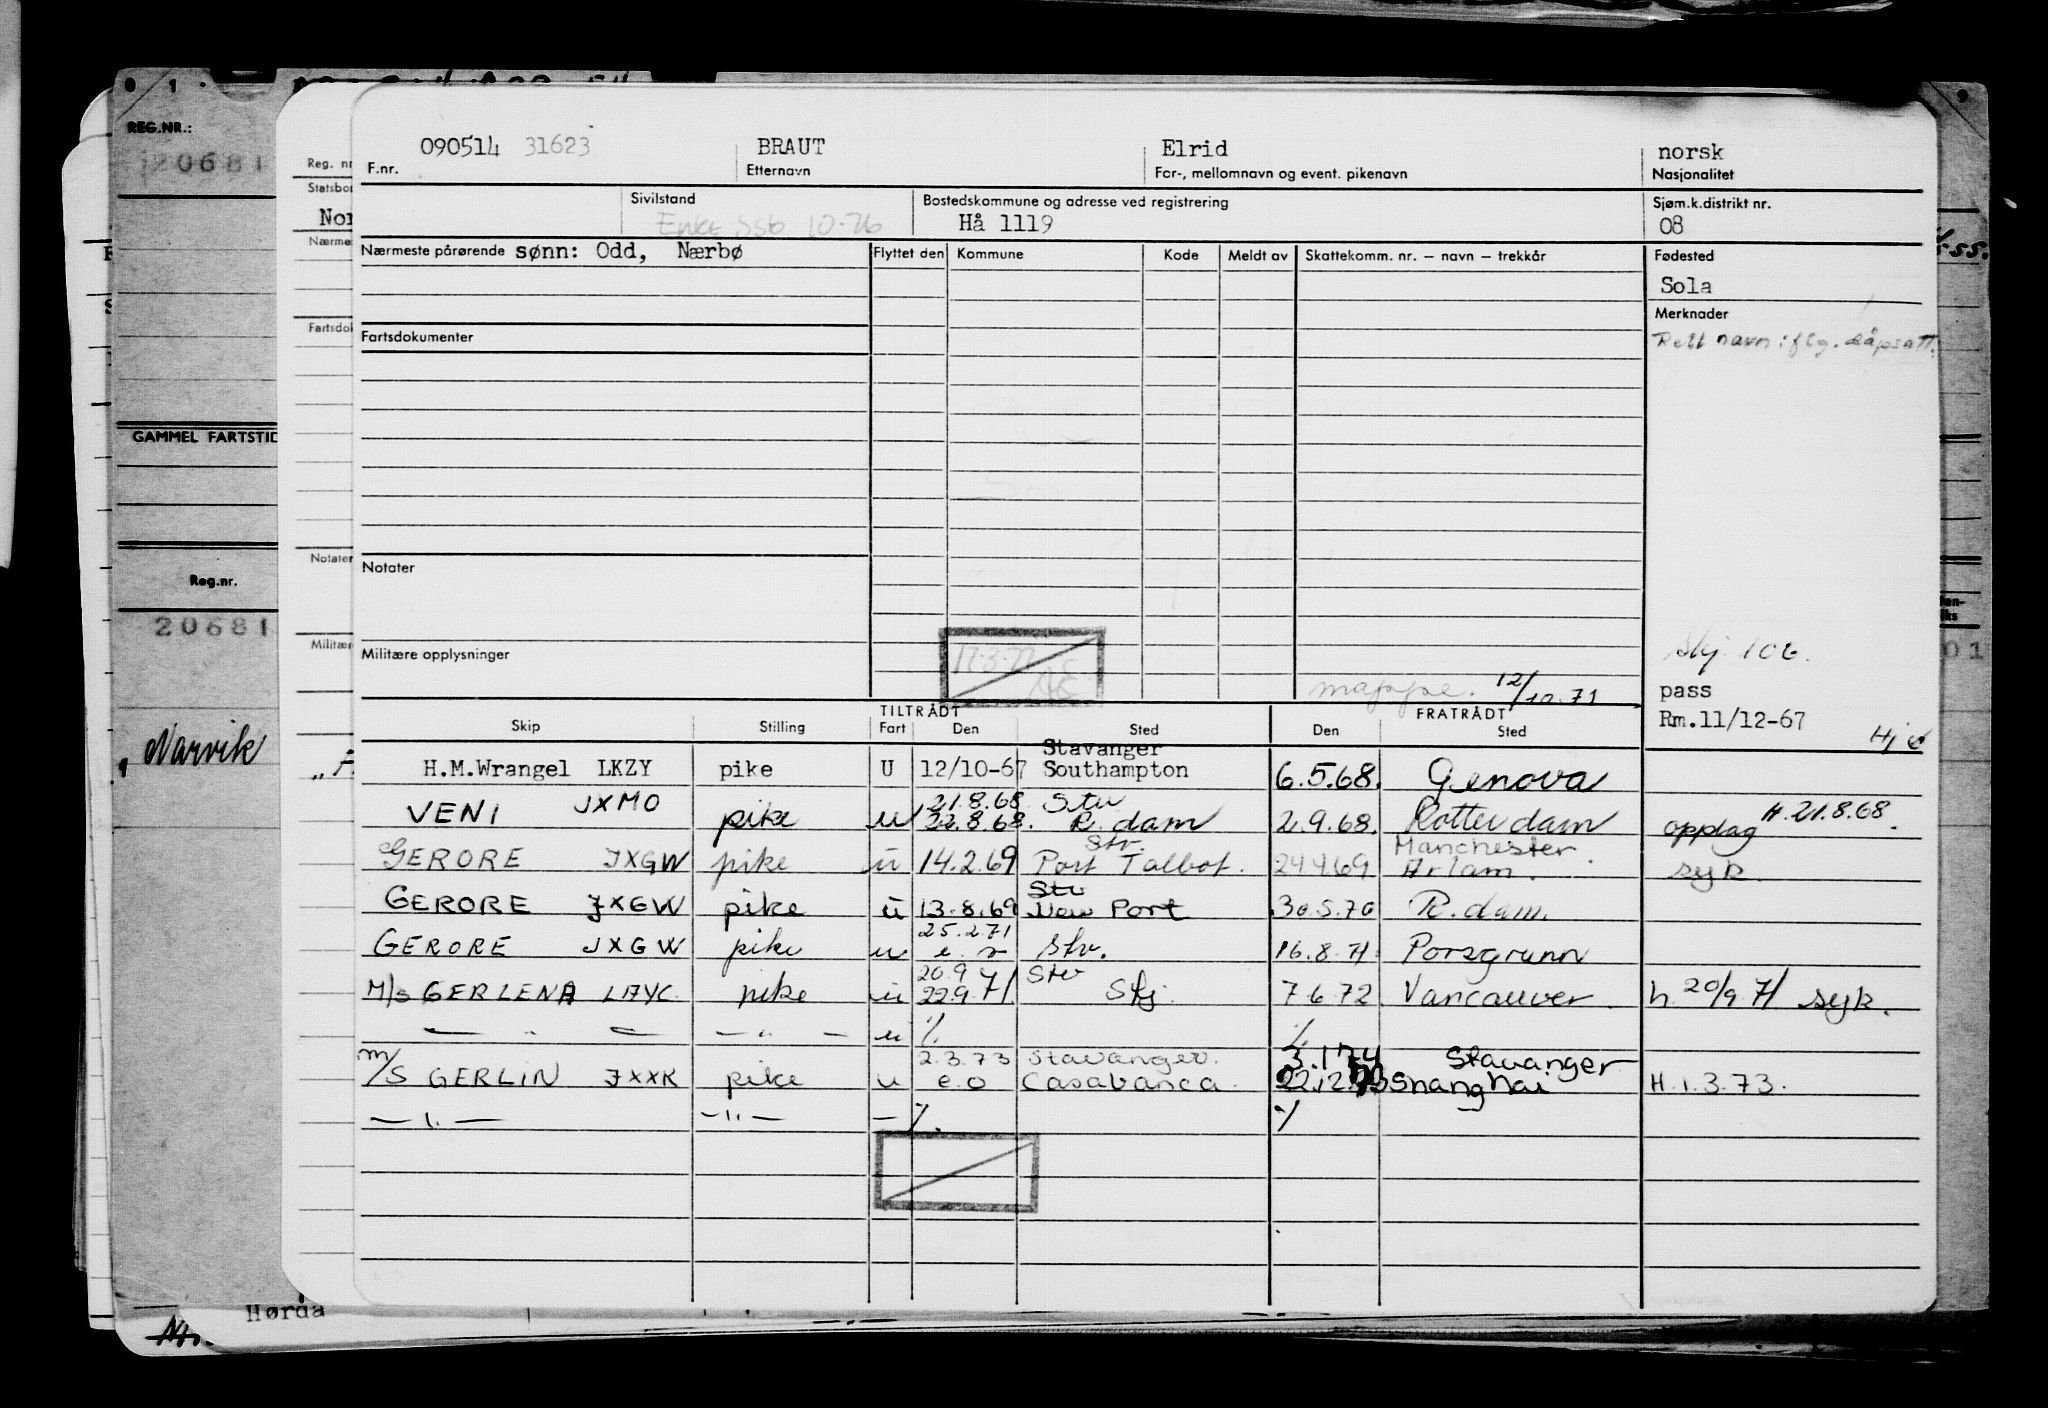 REG.NR.:
20681
GAMMEL FARTSTID
Reg.nr.
20681
Narvik
Reg. nr
Nor
Nærme
Notater
Hørda
090514 31623 BRAUT Elrid norsk
F.nr. Etternavn For-, mellomnavn og event. pikenavn Nasjonalitet
Sivilstand Bostedskommune og adresse ved registrering Sjøm.k.distrikt nr.
Enke Ssb 10.76 Hå 1119 08
Nærmeste pårørende sønn: Odd, Nærbø Flyttet den Kommune Kode Meldt av Skattekomm. nr. – navn – trekkår Fødested
Sola
Fartsdokumenter Merknader
Rett navn iflg. dåpsatt.
Notater
Militære opplysninger
17.3.77
Skj 106.
mappe. 12/10.71 pass
Rm.11/12-67
TILTRÅDT FRATRÅDT
Skip Stilling Fart Den Sted Den Sted
Stavanger
H.M.Wrangel LKZY pike U 12/10-67 Southampton 6.5.68. Genova
21.8.68 Stv
VENI JXMO pike u 22.8.68. R.dam 2.9.68. Rotterdam opplag H.21.8.68.
Stv. Manchester
GERORE JXGW pike u 14.2.69 Port Talbot. 24.4.69 syk.
Stv
GERORE JXGW pike u 13.8.69 New Port 30.5.70 R.dam.
25.2.71
GERORE JXGW pike u Stv. 16.8.71 Porsgrunn
20.9 Stv
M/s GERLENA LAYC pike u 22.9.71 Skj 7.6.72 Vancouver. h. 20/9.71 syk.
— " — — " — u % %
2.3.73 Stavanger. 3.1.74 Stavanger
M/S GERLIN JXXK pike u e.o Casabanca. 22.12.73 Shanghai H.1.3.73.
— " — — " — — % %